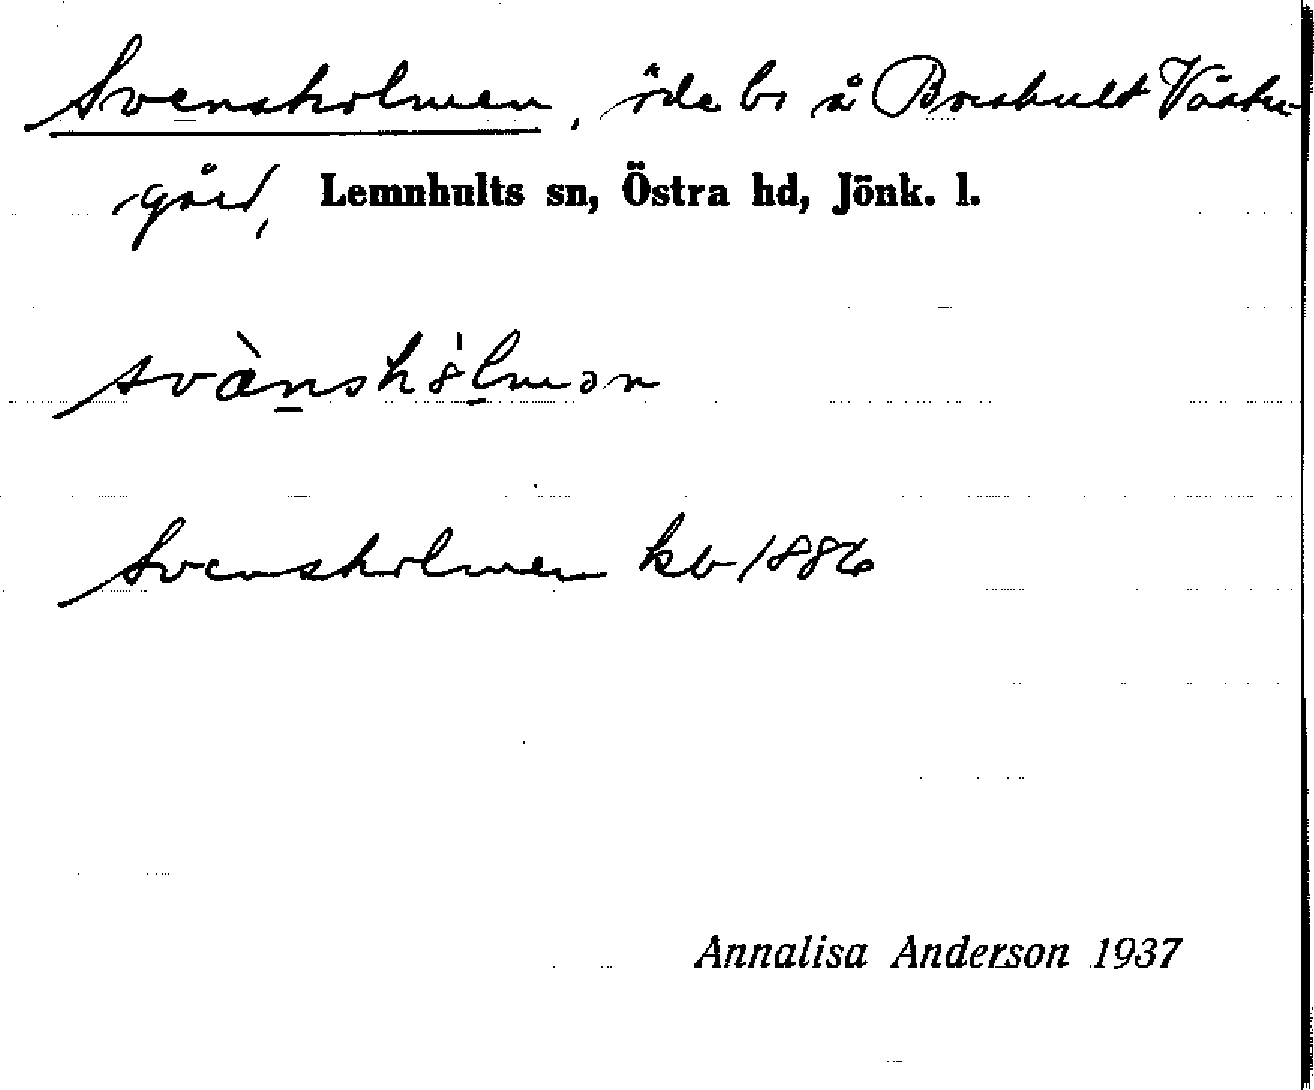 Svensholmen, öde bs å Boeshult Väster-
gård, Lemnhults sn, Östra hd, Jönk. l.
svànshólmən
Svensholmen kb 1886
Annalisa Anderson 1937